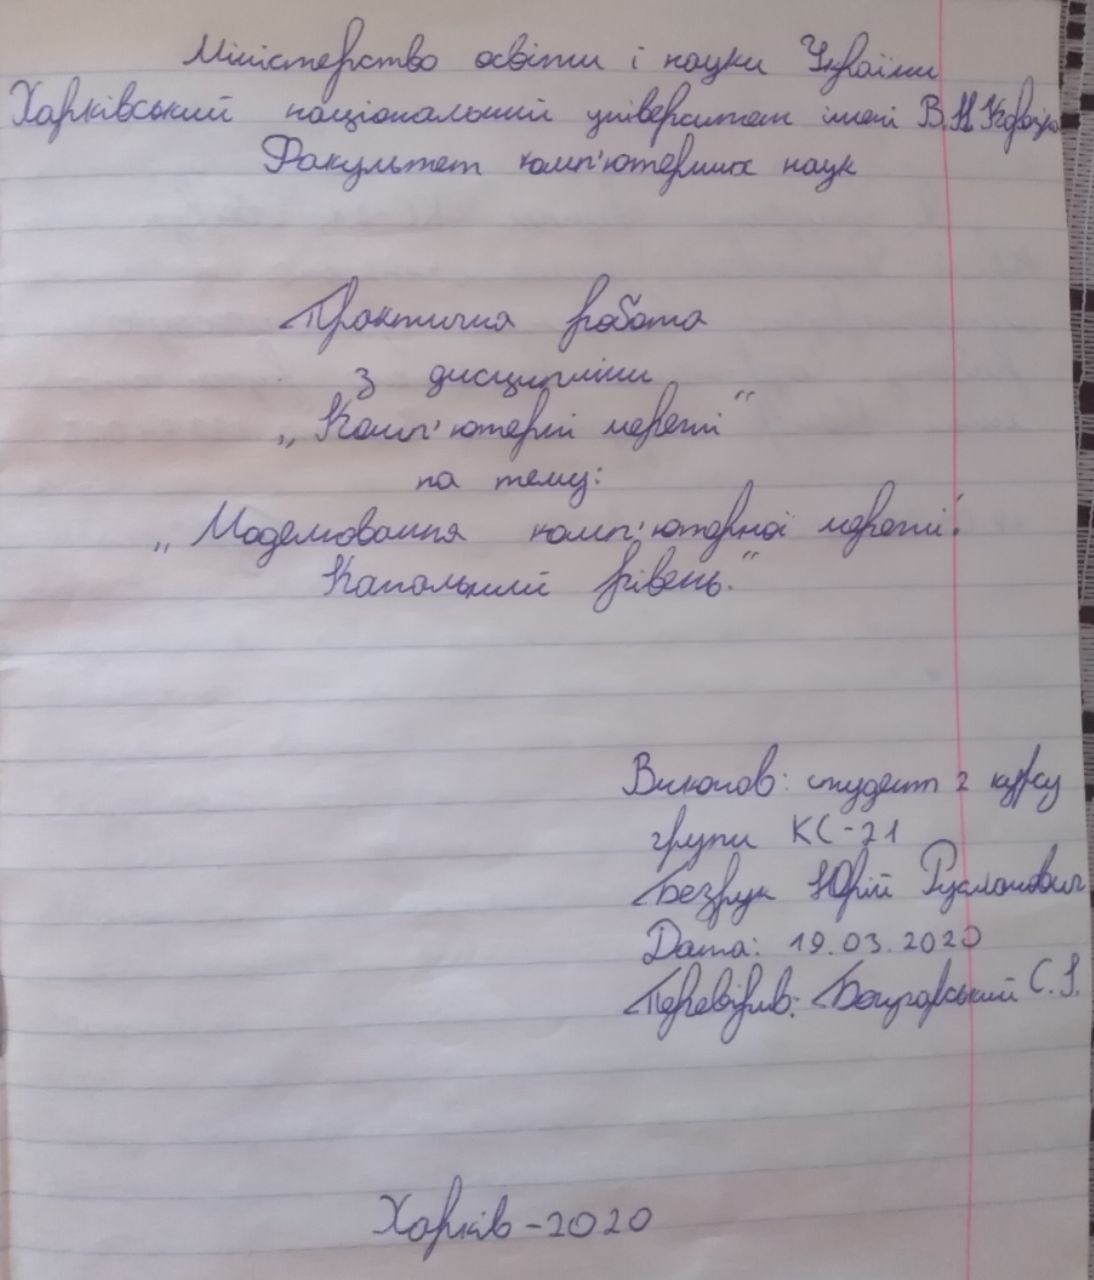 Міністерство освіти і науки України
Харківський національний університет імені В.Н. Каразіна
Факультет комп'ютерних наук
Практична робота
з дисципліни
„Комп'ютерні мережі“
на тему:
„Моделювання комп'ютерної мережі.
Канальний рівень.“
Виконав: студент 2 курсу
групи КС-21
Безрук Юрій Русланович
Дата: 19.03.2020
Перевірив: С.І.
Харків-2020